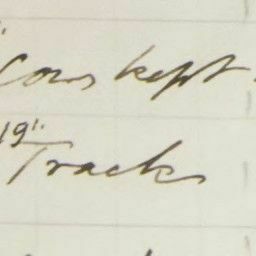 Cows kept
19"
Track